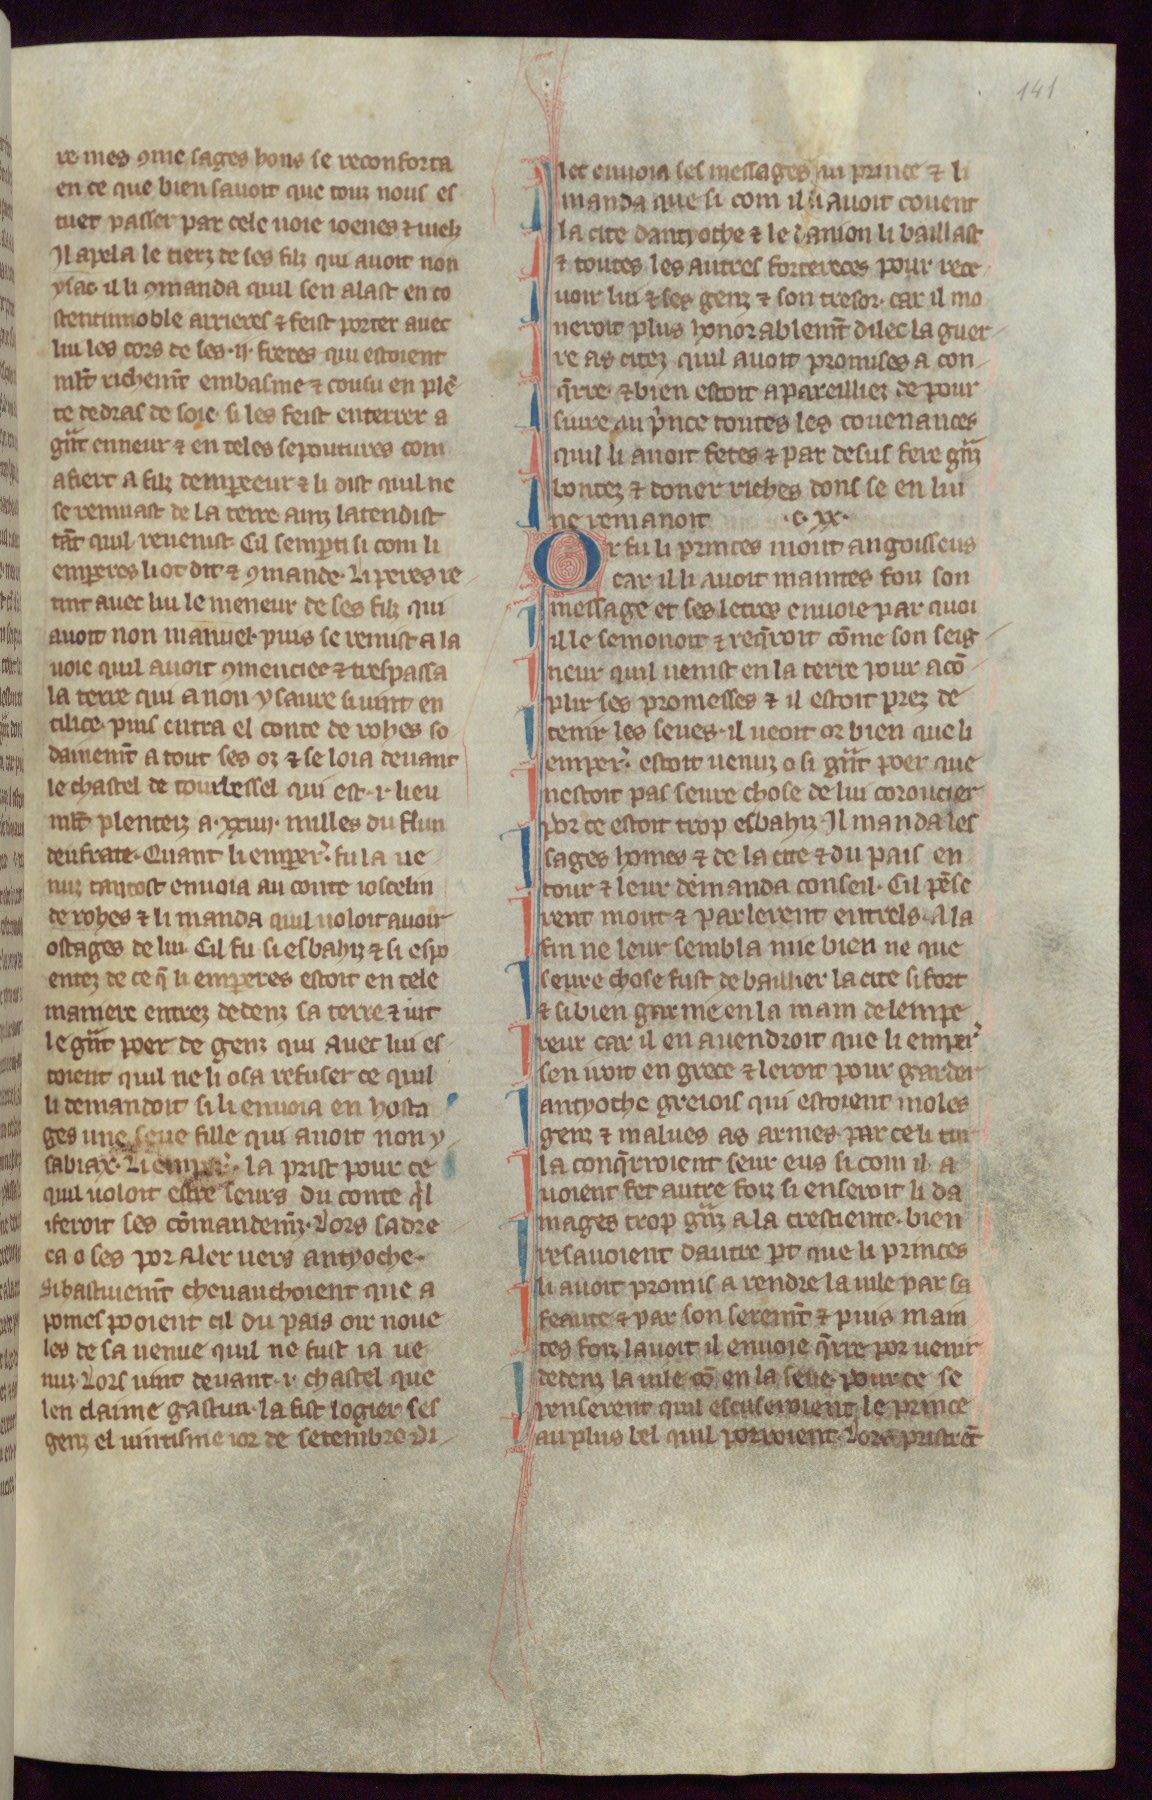 141
re mes ꝯme sages hons se reconforta
en ce que bien sauoit que touz nous es
tuet passer par cele uoie ioenes ⁊ uielz
Il apela le tierz de ses filz qui auoit non
ysac il li ꝯmanda quil sen alast en co
stentinnoble arrieres ⁊ feist porter auec
lui les cors de ses .ii. freres qui estoient
ml̃t richem̃t embasme ⁊ cousu en plẽ
te de dras de soie si les feist enterrer a
gñt enneur ⁊ en teles sepoutures com
afiert a filz dempereeur ⁊ li dist quil ne
se remuast de la terre ainz latendist
tãt quil reuenist. Cil semparti si com li
emperes li ot dit ⁊ ꝯmande. Li peres re
tint auec lui le meneur de ses filz qui
auoit non manuel. puis se remist a la
uoie quil auoit ꝯmenciee ⁊ trespassa
la terre qui a non ysaure si uint en
cilice. puis entra el conte de rohes so
dainem̃t a tout ses oz ⁊ se loia deuant
le chastel de tourbessel qui est .i. lieu
ml̃t plenteiz a .xxiiij. milles du flun
deufrate. Quant li emper̃. fu la ue
nuz tantost enuoia au conte ioscelin
de rohes ⁊ li manda quil uoloit auoir
ostages de lui. Cil fu si esbahiz ⁊ si espo
entez de ce q̃ li emperes estoit en tele
maniere entrez dedenz sa terre ⁊ uit
le gñt poer de genz qui auec lui es
toient quil ne li osa refuser ce quil
li demandoit si li enuoia en hosta
ges une seue fille qui auoit non y
sabiax. Li emper̃. la prist pour ce
quil uoloit estre seurs du conte q̃l
feroit ses cõmandem̃z. Lors sadre
ca o ses por aler uers antyoche.
Si hastiuem̃t cheuauchoient que a
poines pooient cil du pais oir nouue
les de sa uenue quil ne fust ia ue
nuz. Lors uint deuant .i. chastel que
len claime gastun. la fist logier ses
genz el uintisme ior de setembre. Di
lec enuoia ses messages au prince ⁊ li
manda que si com il li auoit couent
la cite dantyoche ⁊ le danion li baillast
⁊ toutes les autres forteresces pour rece
uoir lui ⁊ ses genz ⁊ son tresor. car il mo
neroit plus honorablem̃t dilec la guer
re as citez quil auoit promises a con
q̃rre. ⁊ bien estoit apareilliez de pour
suire au p̃nce toutes les couenances
quil li auoit fetes ⁊ par desus fere gñz
bontez ⁊ doner riches dons se en lui
ne remanoit .c.xx.
Or fu li princes mout angoisseus
car il li auoit maintes foiz son
message et ses letres enuoie par quoi
il le semonoit ⁊ req̃roit cõme son seig
neur quil uenist en la terre pour acõ
plir ses promesses ⁊ il estoit prez de
tenir les seues. il ueoit or bien que li
emper̃. estoit uenuz o si gñt poer que
nestoit pas seure chose de lui coroucier
por ce estoit trop esbahiz. Il manda les
sages homes ⁊ de la cite ⁊ du pais en
tour ⁊ leur demanda conseil. Cil pẽse
rent mout ⁊ parlerent entrels. A la
fin ne leur sembla mie bien ne que
seure chose fust de baillier la cite si fort
⁊ si bien garnie en la main de lempe
reur car il en auendroit que li emper̃
sen iroit en grece ⁊ leroit pour garder
antyoche greiois qui estoient moles
genz ⁊ malues as armes. par ce li tur
la conq̃rroient seur eus si com il a
uoient fet autre foiz si en seroit li da
mages trop gñz a la crestiente. bien
resauoient dautre pt que li princes
li auoit promis a rendre la uile par sa
feaute ⁊ par son serem̃t ⁊ puis main
tes foiz lauoit il enuoie q̃rre por uenir
dedenz la uile cõ en la seue. pour ce se
penserent quil escuseroient le prince
au plus bel quil porroient. Lors pristrẽt